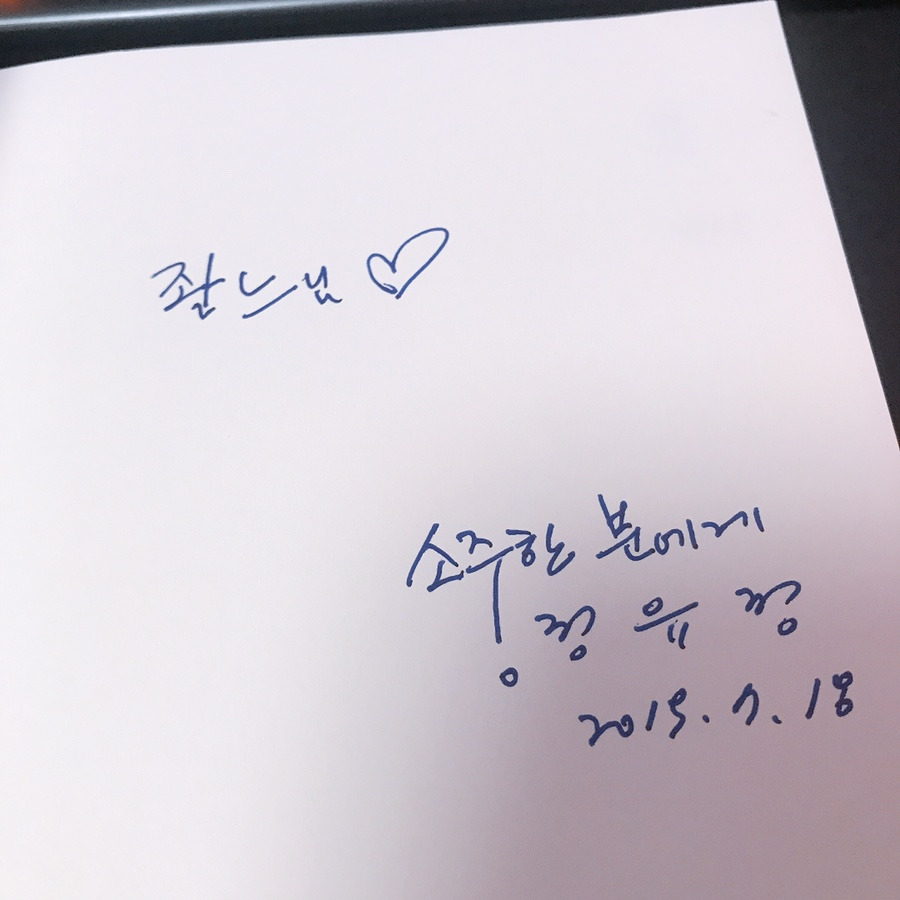 좔느님♡
소중한 분에게
정유정
2019. 7. 18